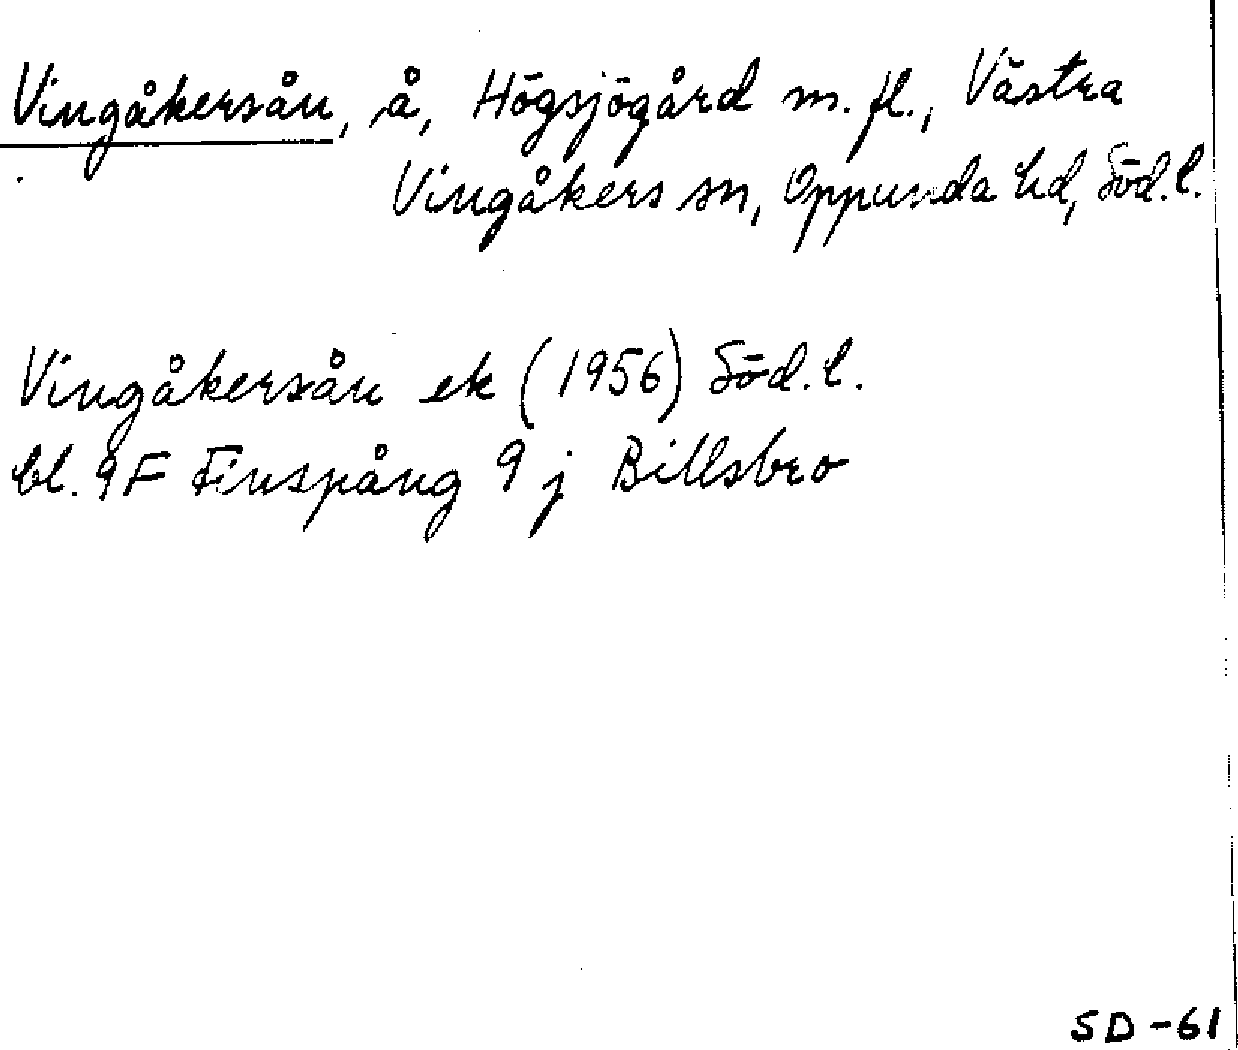 Vingåkersån, å, Högsjögård m. fl., Västra
Vingåkers sn, Oppunda hd, Söd. l.
Vingåkersån ek (1956) Söd. l.
bl. 9F Finspång 9 j Billsbro
SD-61